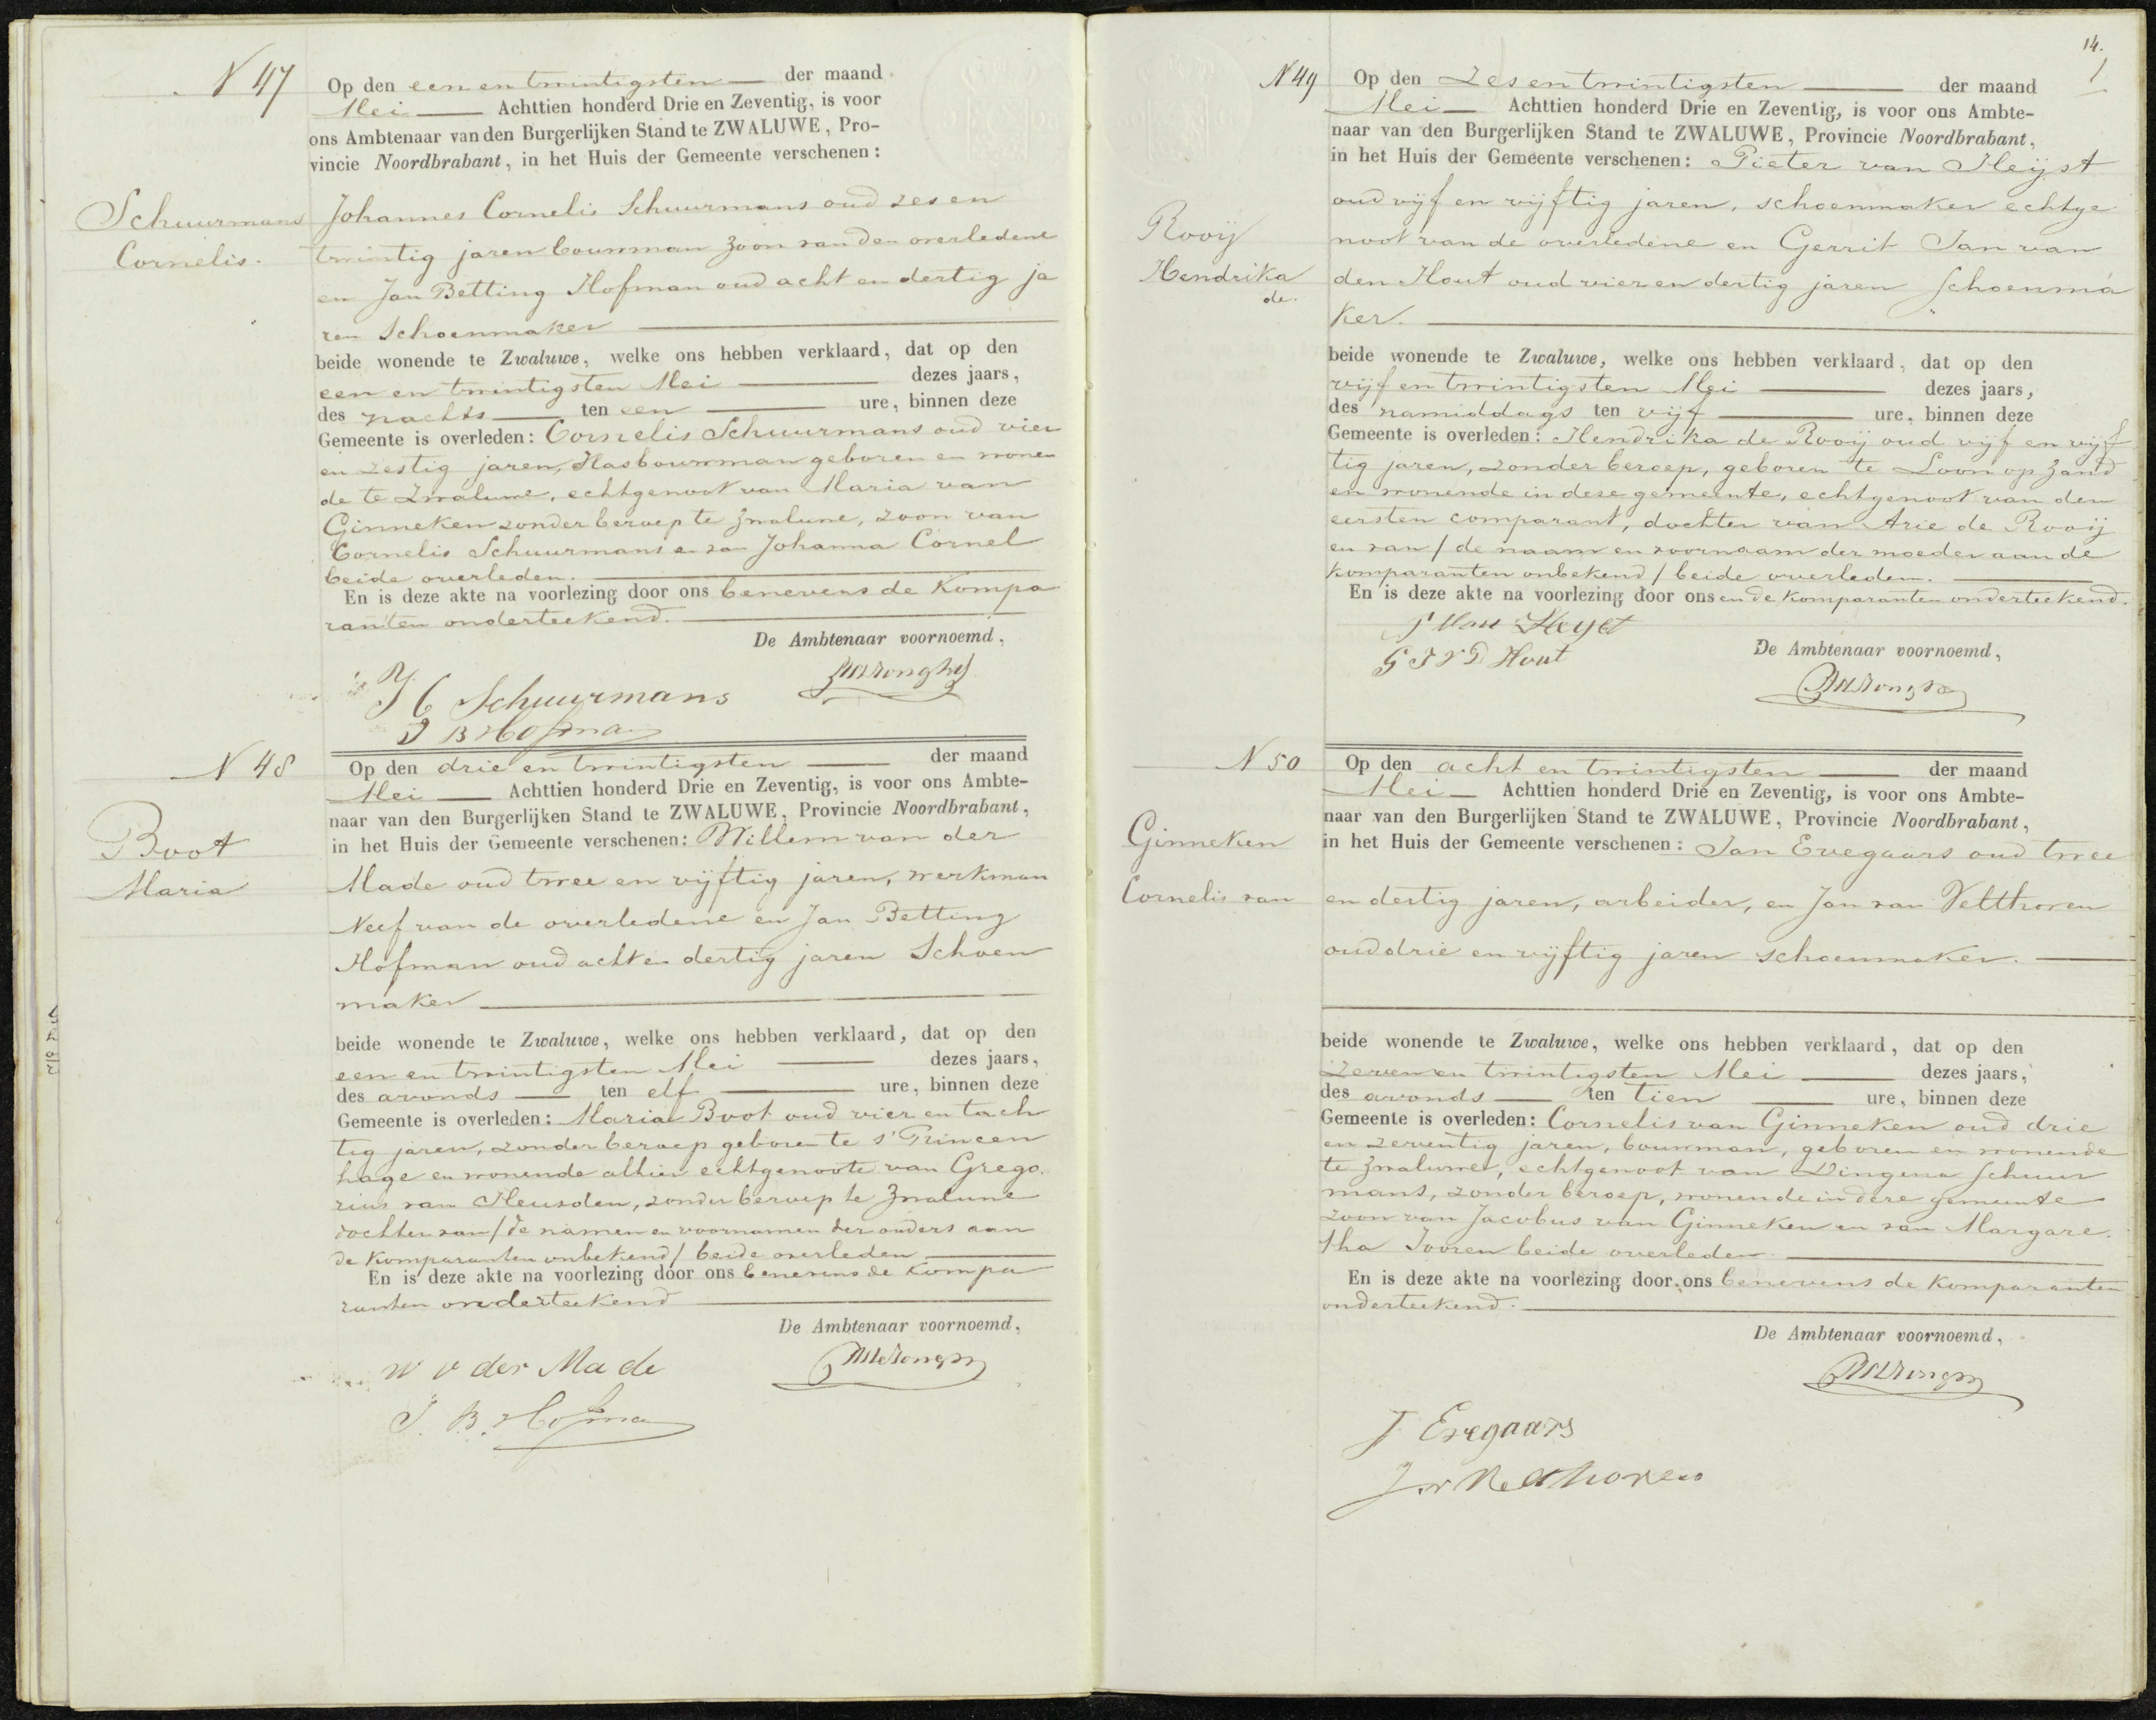 N 47
Op den een en twintigsten der maand
Mei Achttien honderd Drie en Zeventig, is voor
ons Ambtenaar van den Burgerlijken Stand te ZWALUWE, Pro-
vincie Noordbrabant, in het Huis der Gemeente verschenen:
Schuurmans
Cornelis.
Johannes Cornelis Schuurmans oud zes en
twintig jaren bouwman zoon van den overledene
en Jan Betting Hofman oud acht en dertig ja
ren Schoenmaker
beide wonende te Zwaluwe, welke ons hebben verklaard, dat op den
een en twintigsten Mei dezes jaars,
des nachts ten een ure, binnen deze
Gemeente is overleden: Cornelis Schuurmans oud vier
en zestig jaren, Vlasbouwman geboren en wonen
de te Zwaluwe, echtgenoot van Maria van
Ginneken zonder beroep te Zwaluwe, zoon van
Cornelis Schuurmans en van Johanna Cornel
beide overleden.
En is deze akte na voorlezing door ons benevens de Kompa
ranten onderteekend.
De Ambtenaar voornoemd,
J C Schuurmans
J B Hofman
N 48
Op den drie en twintigsten der maand
Mei Achttien honderd Drie en Zeventig, is voor ons Ambte-
naar van den Burgerlijken Stand te ZWALUWE, Provincie Noordbrabant,
in het Huis der Gemeente verschenen: Willem van der
Boot
Maria
Made oud twee en vijftig jaren, werkman
Neef van de overledene en Jan Betting
Hofman oud acht en dertig jaren Schoen
maker
beide wonende te Zwaluwe, welke ons hebben verklaard, dat op den
een en twintigsten Mei dezes jaars,
des avonds ten elf ure, binnen deze
Gemeente is overleden: Maria Boot oud vier en tach
tig jaren, zonder beroep geboren te s' Princen
hage en wonende alhier echtgenoote van Grego.
rius van Heusden, zonder beroep te Zwaluwe
dochter van / de namen en voornamen der ouders aan
de Komparanten onbekend / beide overleden
En is deze akte na voorlezing door ons benevens de Kompa
ranten onderteekend
De Ambtenaar voornoemd,
W v der Made
J. B. Hofman
14.
N 49
Op den Zes en twintigsten der maand
Mei Achttien honderd Drie en Zeventig, is voor ons Ambte-
naar van den Burgerlijken Stand te ZWALUWE, Provincie Noordbrabant,
in het Huis der Gemeente verschenen: Pieter van Heijst
Rooij
Hendrika
de.
oud vijf en vijftig jaren, schoenmaker echtge
noot van de overledene en Gerrit Jan van
den Hout oud vier en dertig jaren Schoenma
ker.
beide wonende te Zwaluwe, welke ons hebben verklaard, dat op den
vijf en twintigsten Mei dezes jaars,
des namiddags ten vijf ure, binnen deze
Gemeente is overleden: Hendrika de Rooij oud vijf en vijf
tig jaren, zonder beroep, geboren te Loon op Zand
en wonende in deze gemeente, echtgenoot van den
eersten comparant, dochter van Arie de Rooij
en van / de naam en voornaam der moeder aan de
Komparanten onbekend / beide overleden.
En is deze akte na voorlezing door ons en de Komparanten onderteekend.
De Ambtenaar voornoemd,
P Van Heyst
G J V D Hout
N 50
Op den acht en twintigsten der maand
Mei Achttien honderd Drie en Zeventig, is voor ons Ambte-
naar van den Burgerlijken Stand te ZWALUWE, Provincie Noordbrabant,
in het Huis der Gemeente verschenen: Jan Evegaars oud twee
Ginneken
Cornelis van
en dertig jaren, arbeider, en Jan van Velthoven
oud drie en vijftig jaren schoenmaker.
beide wonende te Zwaluwe, welke ons hebben verklaard, dat op den
Zeven en twintigsten Mei dezes jaars,
des avonds ten tien ure, binnen deze
Gemeente is overleden: Cornelis van Ginneken oud drie
en zeventig jaren, bouwman, geboren en wonende
te Zwaluwe, echtgenoot van Dingena Schuur
mans, zonder beroep, wonende in deze gemeente
zoon van Jacobus van Ginneken en van Margare.
tha Jooren beide overleden.
En is deze akte na voorlezing door ons benevens de Komparanten
onderteekend.
De Ambtenaar voornoemd,
J Evegaars
J v Velthoven